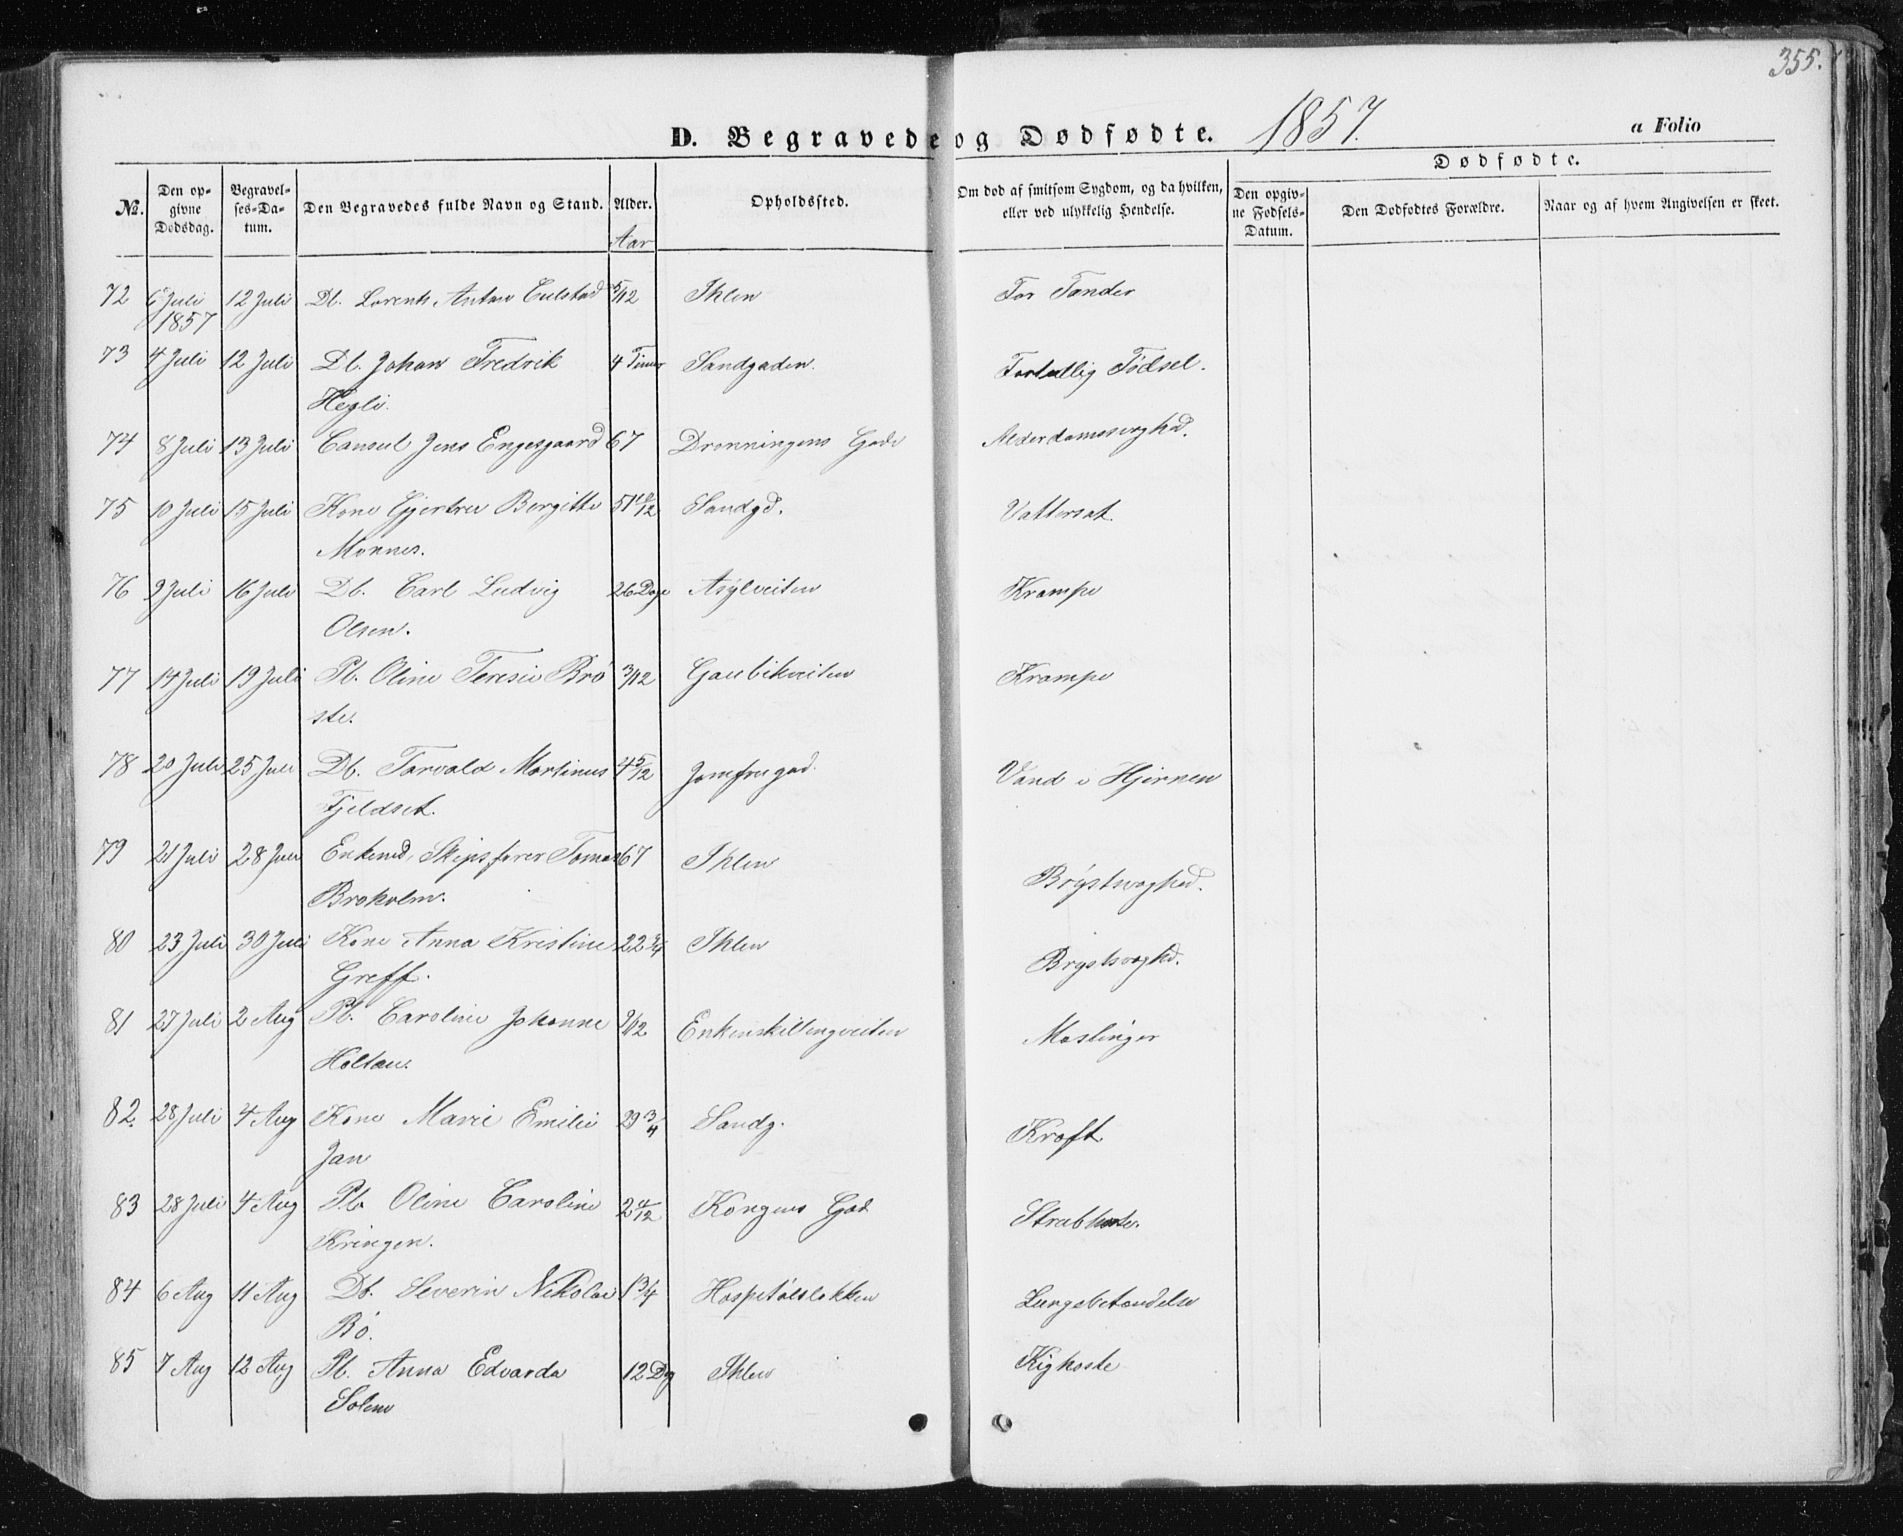 355.
D. Begravede og Dødfødte. 1857.
a Folio
No.
Den opgivne Dødsdag.
Begravelses-Datum.
Den Begravedes fulde Navn og Stand.
Alder.
Aar
Opholdssted.
Om død af smitsom Sygdom, og da hvilken, eller ved ulykkelig Hendelse.
Dødfødte.
Den opgivne Fødsels-Datum.
Den Dødfødtes Forældre.
Naar og af hvem Angivelsen er skeet.
72 6 Juli 12 Juli Db. Lorents Anton Culstad 5/12 Ihlen For Tænder
1857
73 4 Juli 12 Juli Db. Johan Fredrik 4 Timer Sandgaden. Fortidlig Fødsel.
Hegli.
74 8 Juli 13 Juli Consul Jens Engesgaard 67 Dronningens Gade Alderdomssvaghed.
75 10 Juli 15 Juli Kone Gjertru Bergitte 51 10/12 Sandgd. Vattersot.
Monnes.
76 9 Juli 16 Juli Db. Carl Ludvig 26 Dage Asylveiten Krampe
Olsen.
77 14 Juli 19 Juli Pb. Oline Teresie Brø 3/12 Gaubikveiten Krampe
ste.
78 20 Juli 25 Juli Db. Torvald Martinus 4 5/12 Jomfrugad. Vand i Hjernen
Fjeldset.
79 21 Juli 28 Juli Enkemd. Skipsfører Tomas 67 Ihlen Brystsvaghed.
Broholm.
80 23 Juli 30 Juli Kone Anna Kristine 22 3/4 Ihlen Brystsvaghd.
Greff.
81 27 Juli 2 Aug Pb. Caroline Johanne 9/12 Enkenskillingveiten Meslinger
Holtan.
82. 28 Juli 4 Aug Kone Marie Emilie 29 3/4 Sandg. Kræft
Jan
83 28 Juli 4 Aug Pb. Oline Caroline 2 4/12 Kongens Gad Strubhoste.
Kringen.
84 6 Aug 11 Aug Db. Severin Nikolai 1 3/4 Hospitalsløkken Lungebetændelse
Bø.
85 7 Aug 12 Aug Pb. Anna Edvarda 12 Dg Ihlen Kighoste
Solem